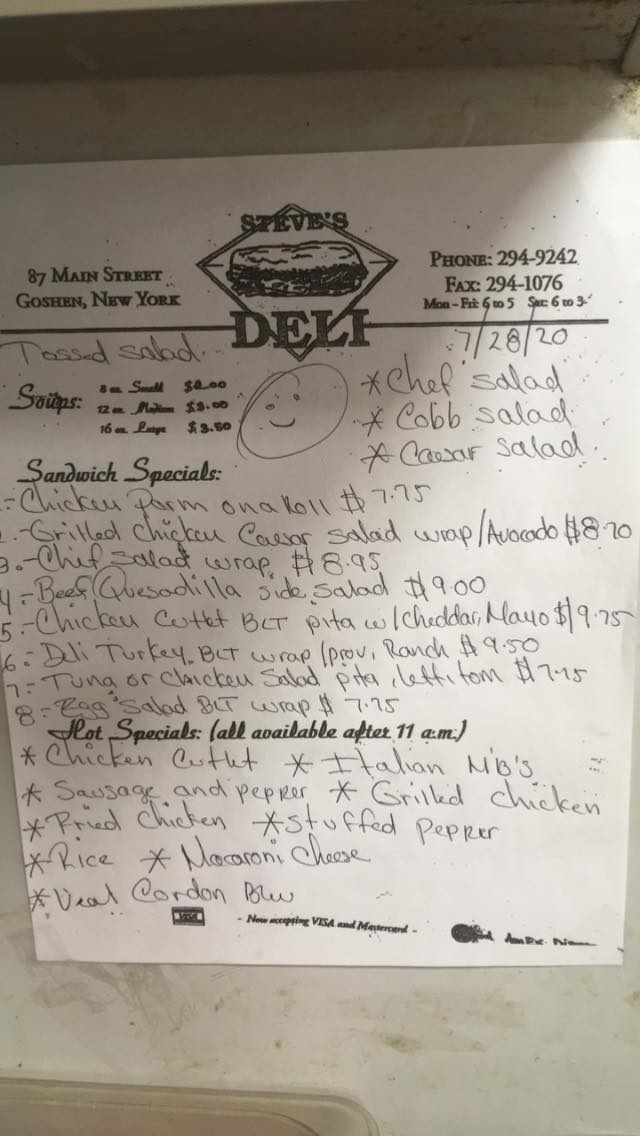 STEVE'S
DELI
87 Main Street
Goshen, New York
Phone: 294-9242
Fax: 294-1076
Mon - Fri: 6 to 5 Sat: 6 to 3
7/28/20
Tossed salad
Soups:
8 oz. Small $2.00
12 oz. Medium $3.00
16 oz. Large $3.50
* Chef salad
* Cobb salad
* Caesar salad
Sandwich Specials:
Chicken Parm on a Roll $7.75
Grilled chicken Caesar salad wrap/Avocado $8.70
3.- Chef salad wrap $8.95
4- Beef Quesadilla side salad $9.00
5- Chicken Cutlet BLT pita w/cheddar, Mayo $9.75
6- Deli Turkey BLT wrap/prov, Ranch $9.50
7- Tuna or Chicken Salad pita, lett, tom $7.75
8- Egg Salad BLT wrap $7.75
Hot Specials: (all available after 11 a.m.)
* Chicken Cutlet * Italian MB's
* Sausage and pepper * Grilled chicken
* Fried Chicken * Stuffed Pepper
* Rice * Macaroni Cheese
* Veal Cordon Blu
VISA - Now accepting VISA and Mastercard -